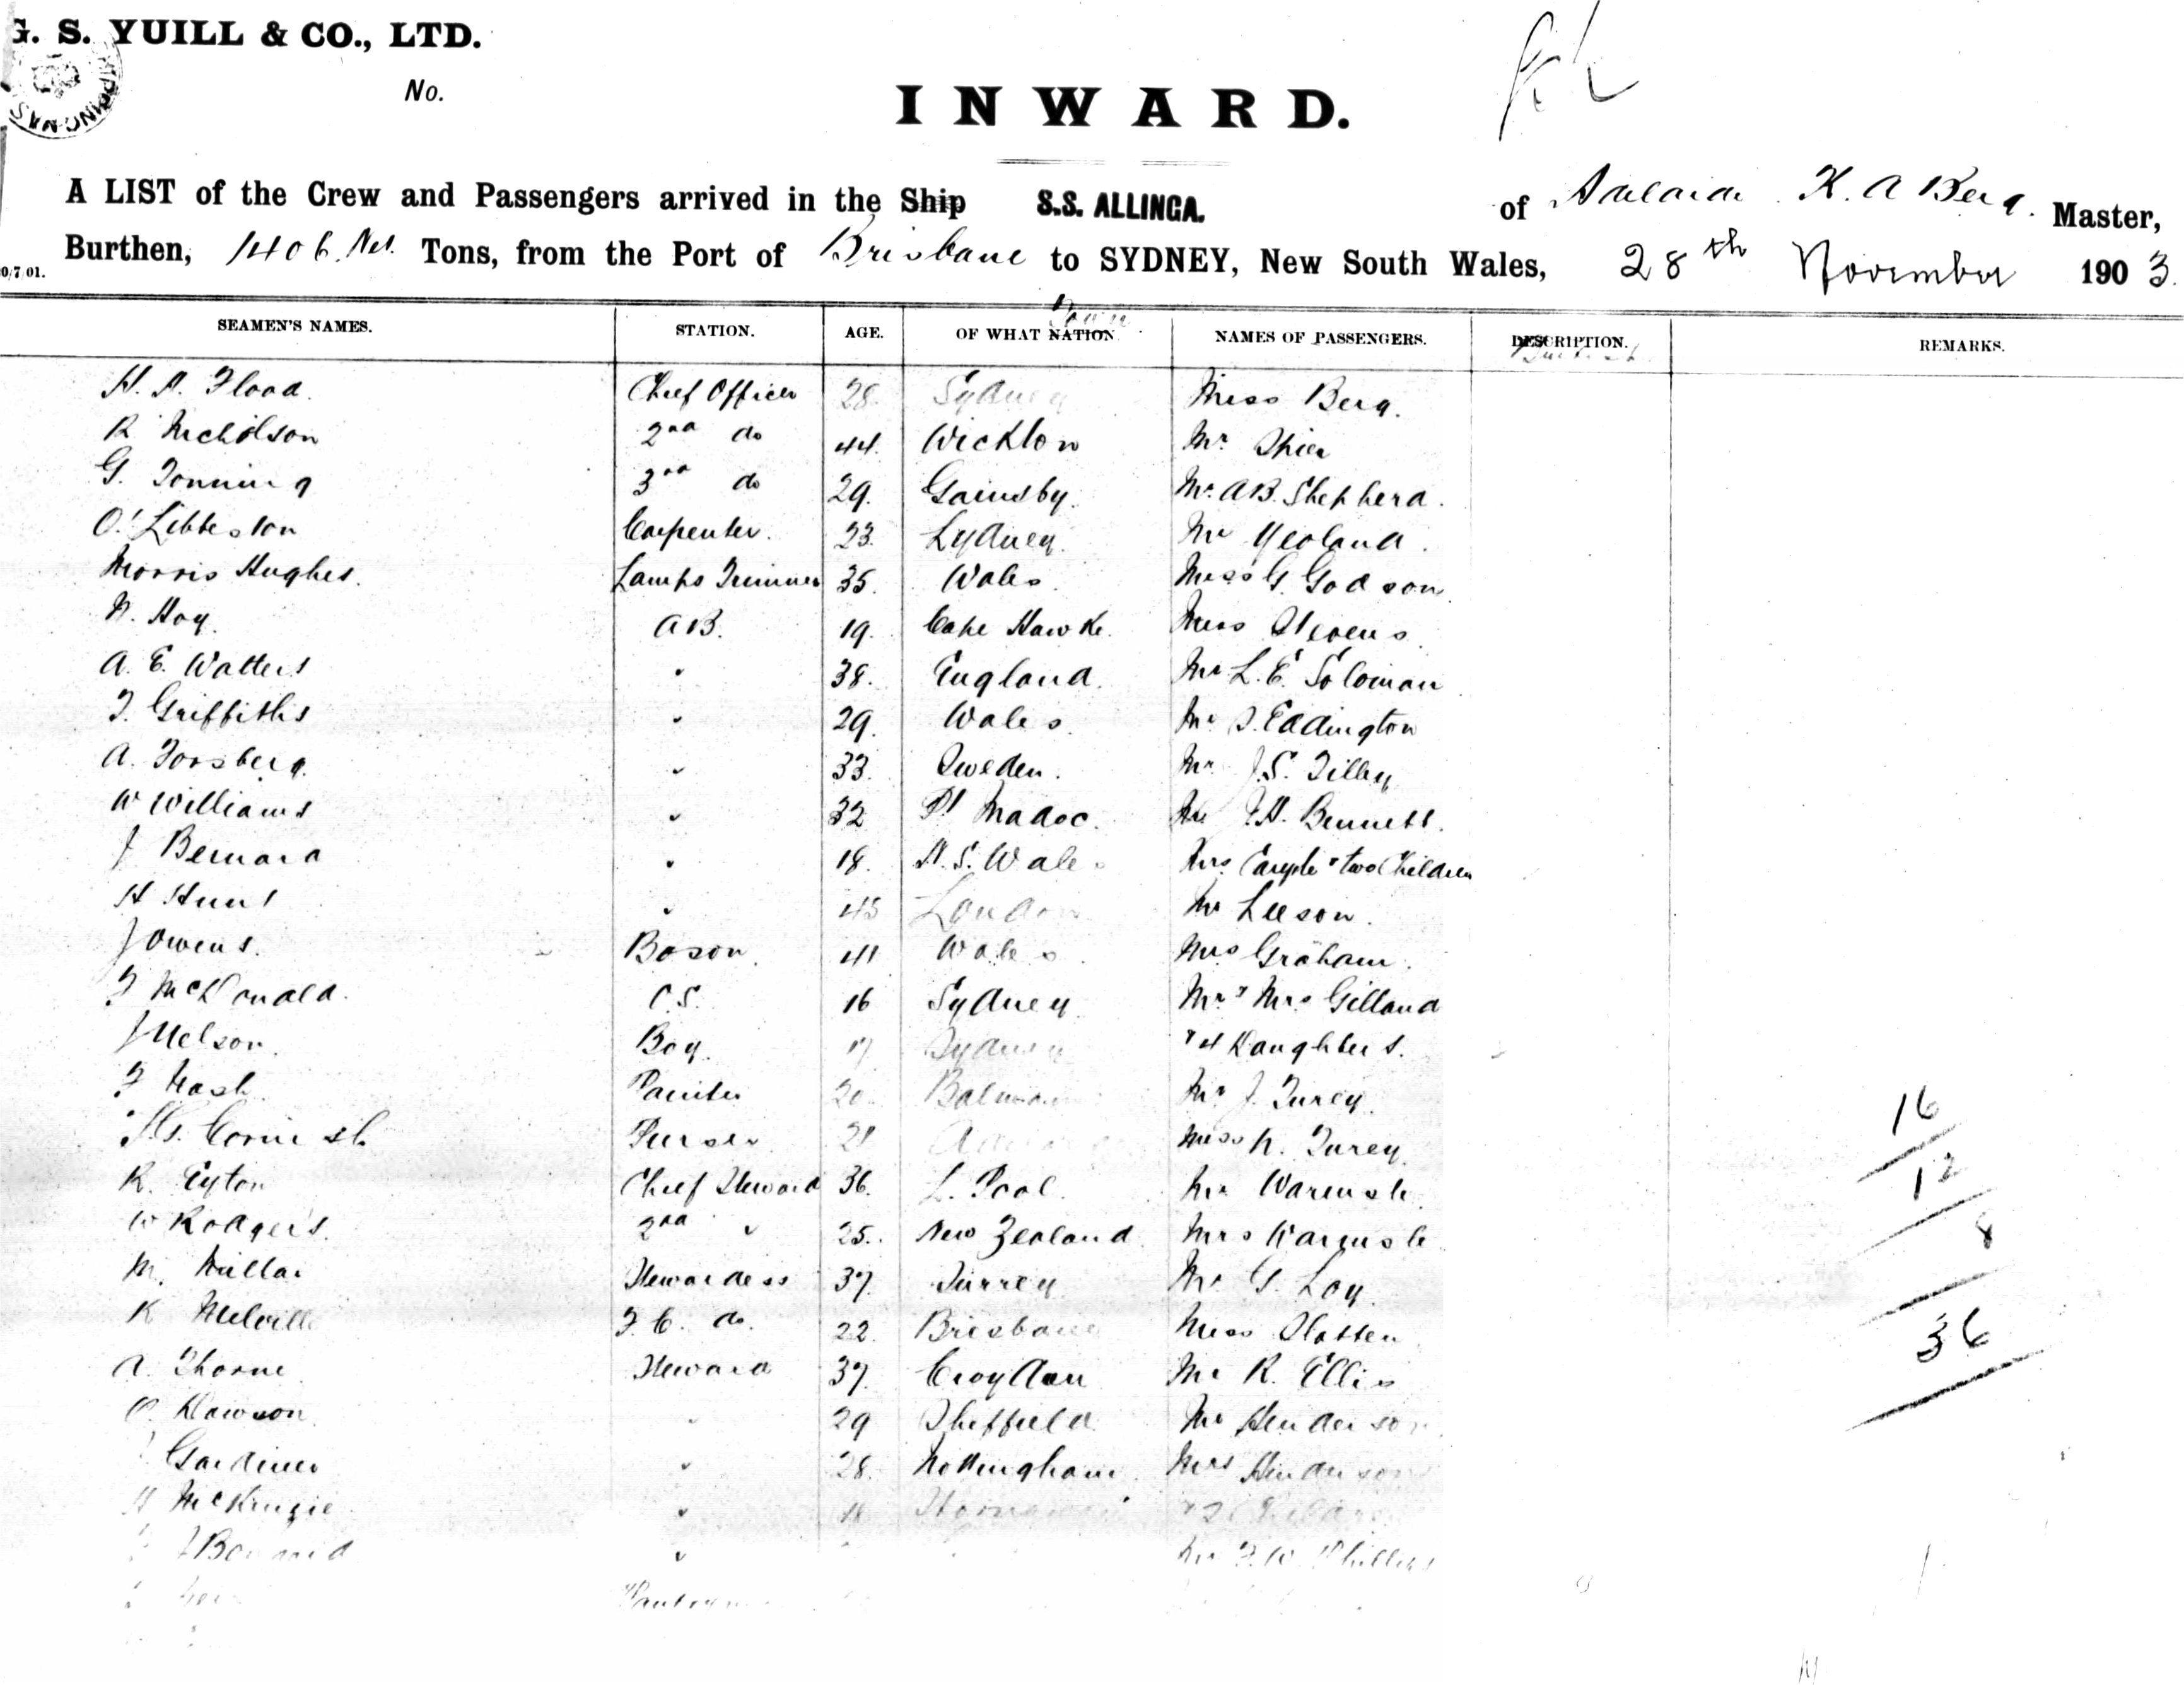 G. S. YUILL & CO., LTD.
No.
INWARD.
A LIST of the Crew and Passengers arrived in the Ship S.S. ALLINGA. of Adelaide K. A Berg. Master,
Burthen, 1406 Net. Tons, from the Port of Brisbane to SYDNEY, New South Wales, 28th November 1903.
0/7/01.
SEAMEN'S NAMES. STATION. AGE. OF WHAT NATION Town NAMES OF PASSENGERS. DESCRIPTION. REMARKS.
H. A. Flood. Chief Officer 28. Sydney Miss Berg.
R Nicholson 2nd do 44. Wicklow Mr
G. Tonning 3rd do 29. Gainsby. Mr. A B. Shepherd.
O. Carpenter. 23. Lydney. Mr Yeoland.
Morris Hughes. Lamps Trimmer 35. Wales. Miss G. Godson.
N. Hoy. AB. 19. Cape Hawke. Miss Stevens.
A. E. Watters " 38. England. Mr L. E. Soloman
T. Griffiths " 29. Wales. Mr Eddington
A. Forsberg. " 33. Sweden. Mr J. S. Tilley
W Williams " 32 Pt Madoc. Mr Bennett.
J Bernard " 18. N. S. Wales Mrs & two Children
H Hunt " 45 London Mr Leeson.
J Owens. Boson. 41 Wales. Mrs Graham.
F McDonald. O.S. 16 Sydney Mr & Mrs Gilland
J Nelson. Boy. 17 Sydney & 4 Daughters.
F Nash. Painter 20 Balmain Mr J. Turey.
Cornish Purser 21 Miss N. Turey.
R. Eyton Chief Steward 36. L. Pool. Mr
W Rodgers. 2nd " 25. New Zealand Mrs
M. Millar Stewardess 37. Surrey Mr G. Loy
K Melville F. C. do. 22. Brisbane Miss Slatten
A. Thorne Steward 37. Croydon Mr R. Ellis
Dawson. " 29 Sheffield Mr Henderson
Gardiner " 28. Nottingham. Mrs Henderson
McKenzie " 18 & 2 Children
Bernard " Mr F. W. Phillips
Pantryman
16
12
8
36